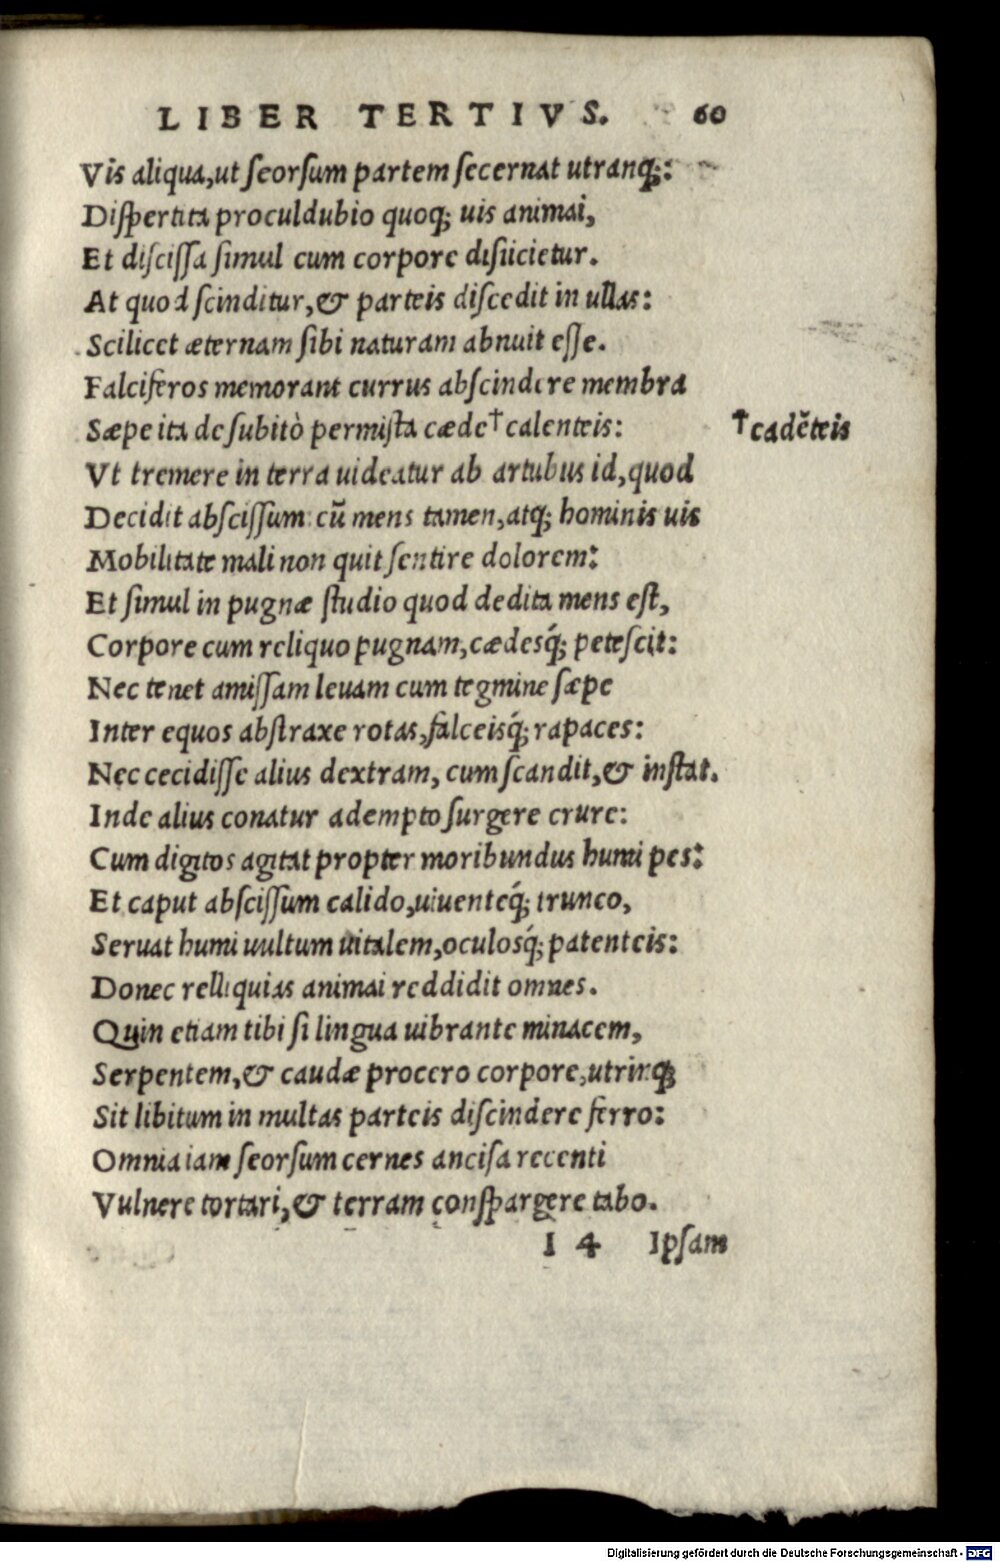 LIBER TERTIVS. 60
Vis aliqua,ut ſeorſum partem ſecernat utranq;:
Diſpertita proculdubio quoq; uis animai,
Et diſciſſa ſimul cum corpore diſiicietur.
At quod ſcinditur,& parteis diſcedit in ullas:
Scilicet æternam ſibi naturam abnuit eſſe.
Falciferos memorant currus abſcindere membra
Sæpe ita de ſubitò permiſta cæde†calenteis: †cadẽteis
Vt tremere in terra uideatur ab artubus id,quod
Decidit abſciſſum: cũ mens tamen,atq; hominis uis
Mobilitate mali non quit ſentire dolorem:
Et ſimul in pugnæ ſtudio quod dedita mens eſt,
Corpore cum reliquo pugnam,cædesq́; peteſcit:
Nec tenet amiſſam leuam cum tegmine ſæpe
Inter equos abſtraxe rotas,falceisq́; rapaces:
Nec cecidiſſe alius dextram, cum ſcandit,& inſtat.
Inde alius conatur adempto ſurgere crure:
Cum digitos agitat propter moribundus humi pes:
Et caput abſciſſum calido,uiuenteq́; trunco,
Seruat humi uultum uitalem,oculosq́; patenteis:
Donec relliquias animai reddidit omnes.
Quin etiam tibi ſi lingua uibrante minacem,
Serpentem,& caudæ procero corpore,utrinq;
Sit libitum in multas parteis diſcindere ferro:
Omnia iam ſeorſum cernes anciſa recenti
Vulnere tortari,& terram conſpargere tabo.
I 4 Ipſam
Digitalisierung gefördert durch die Deutsche Forschungsgemeinschaft - DFG